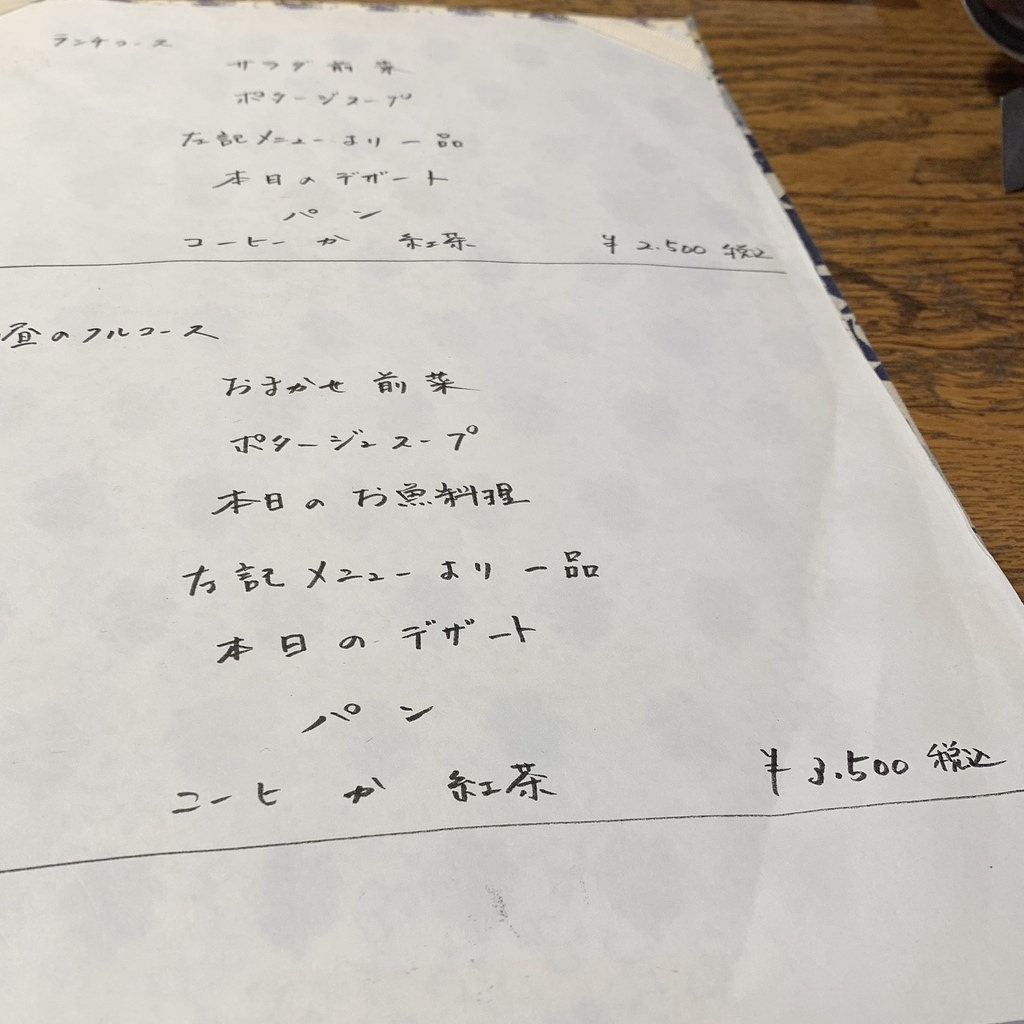 ランチコース
サラダ前菜
ポタージスープ
左記メニューより一品
本日のデザート
パン
コーヒーか 紅茶 ¥2.500 税込
昼のフルコース
おまかせ前菜
ポタージュスープ
本日のお魚料理
左記メニューより一品
本日のデザート
パン
コーヒ か 紅茶 ¥3.500 税込